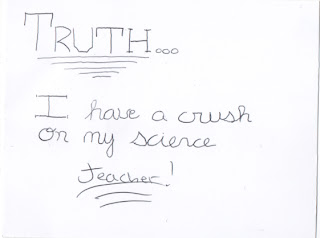 TRUTH...
I have a crush
on my science
teacher!